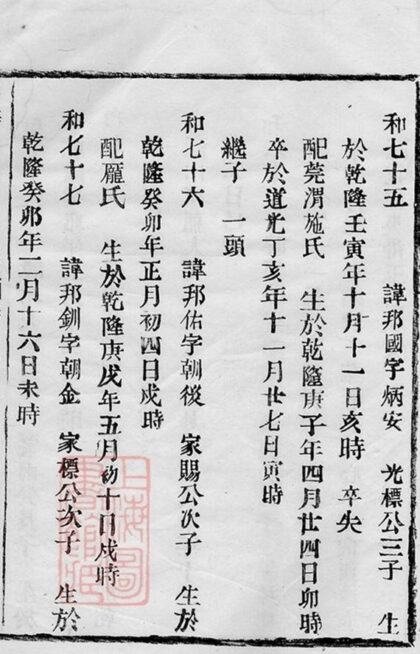 和七十五　諱邦國字炳安　光標公三子　生
於乾隆壬寅年十月十一日亥時　卒失
配莞渭施氏　生於乾隆庚子年四月廿四日卯時
卒於道光丁亥年十一月廿七日寅時
繼子　一頭
和七十六　諱邦佑字朝後　家賜公次子　生於
乾隆癸卯年正月初四日戌時
配龐氏　生於乾隆庚戌年五月初十日戌時
和七十七　諱邦釧字朝金　家標公次子　生於
乾隆癸卯年二月十六日未時
上海圖書館藏